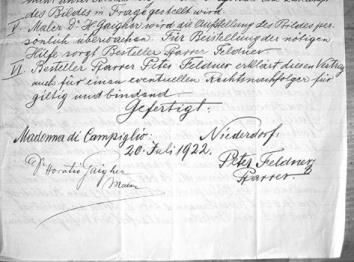 des Bildes in Frage gestellt wird.
V Maler Dr H. Gaigher wird die Aufstellung des Bildes per-
sönlich überwachen. Für Beistellung der nötigen
Hilfe sorgt Besteller Pfarrer Feldner.
VI Besteller Pfarrer Peter Feldner erklärt diesen Vertrag
auch für einen eventuellen Rechtsnachfolger für
giltig und bindend.
Gefertigt:
Madonna di Campiglio Niederdorf,
20. Juli 1922.
Dr Horatio Gaigher Peter Feldner
Maler Pfarrer.